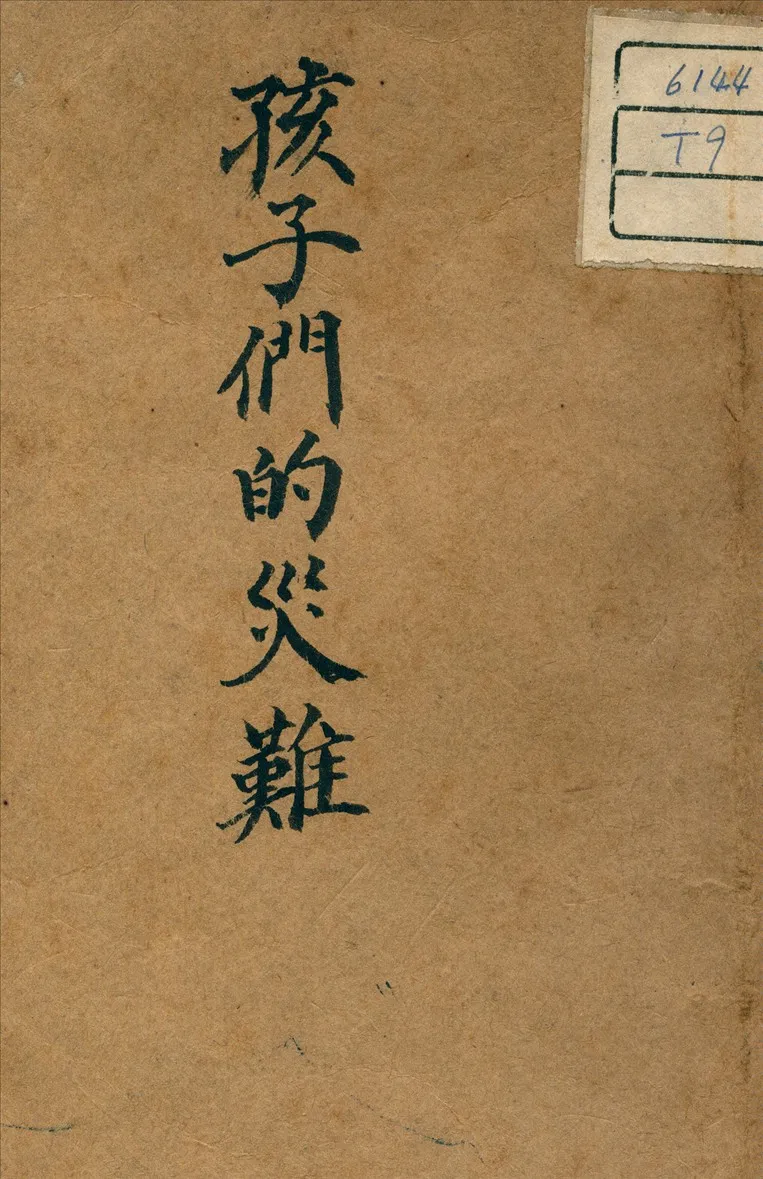 孩子們的災難
6144
T9